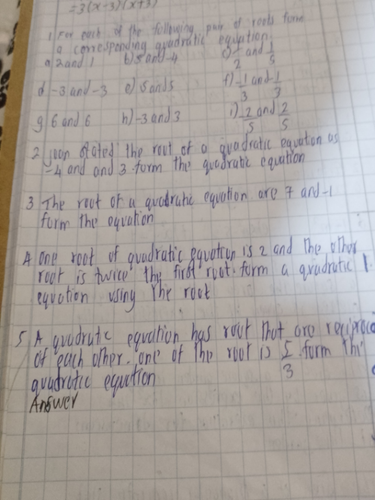 = 3(x-3)(x+3)
1 For each of the following pair of roots form
a corresponding quadratic equation
a 2 and 1 b) 5 and -4 c) 1/2 and 1/5
d -3 and -3 e) 5 and 5 f) -1/3 and 1/3
g 6 and 6 h) -3 and 3 i) -2/5 and 2/5
2 stated the root of a quadratic equation as
-4 and and 3 form the quadratic equation
3 The root of a quadratic equation are 7 and -1
form the equation
4 one root of quadratic equation is 2 and the other
root is twice the first root. form a quadratic
equation using the root
5. A quadratc equation has root that are reciproca
of each other. one of the root is 5/3 form the
quadratic equation
Answer